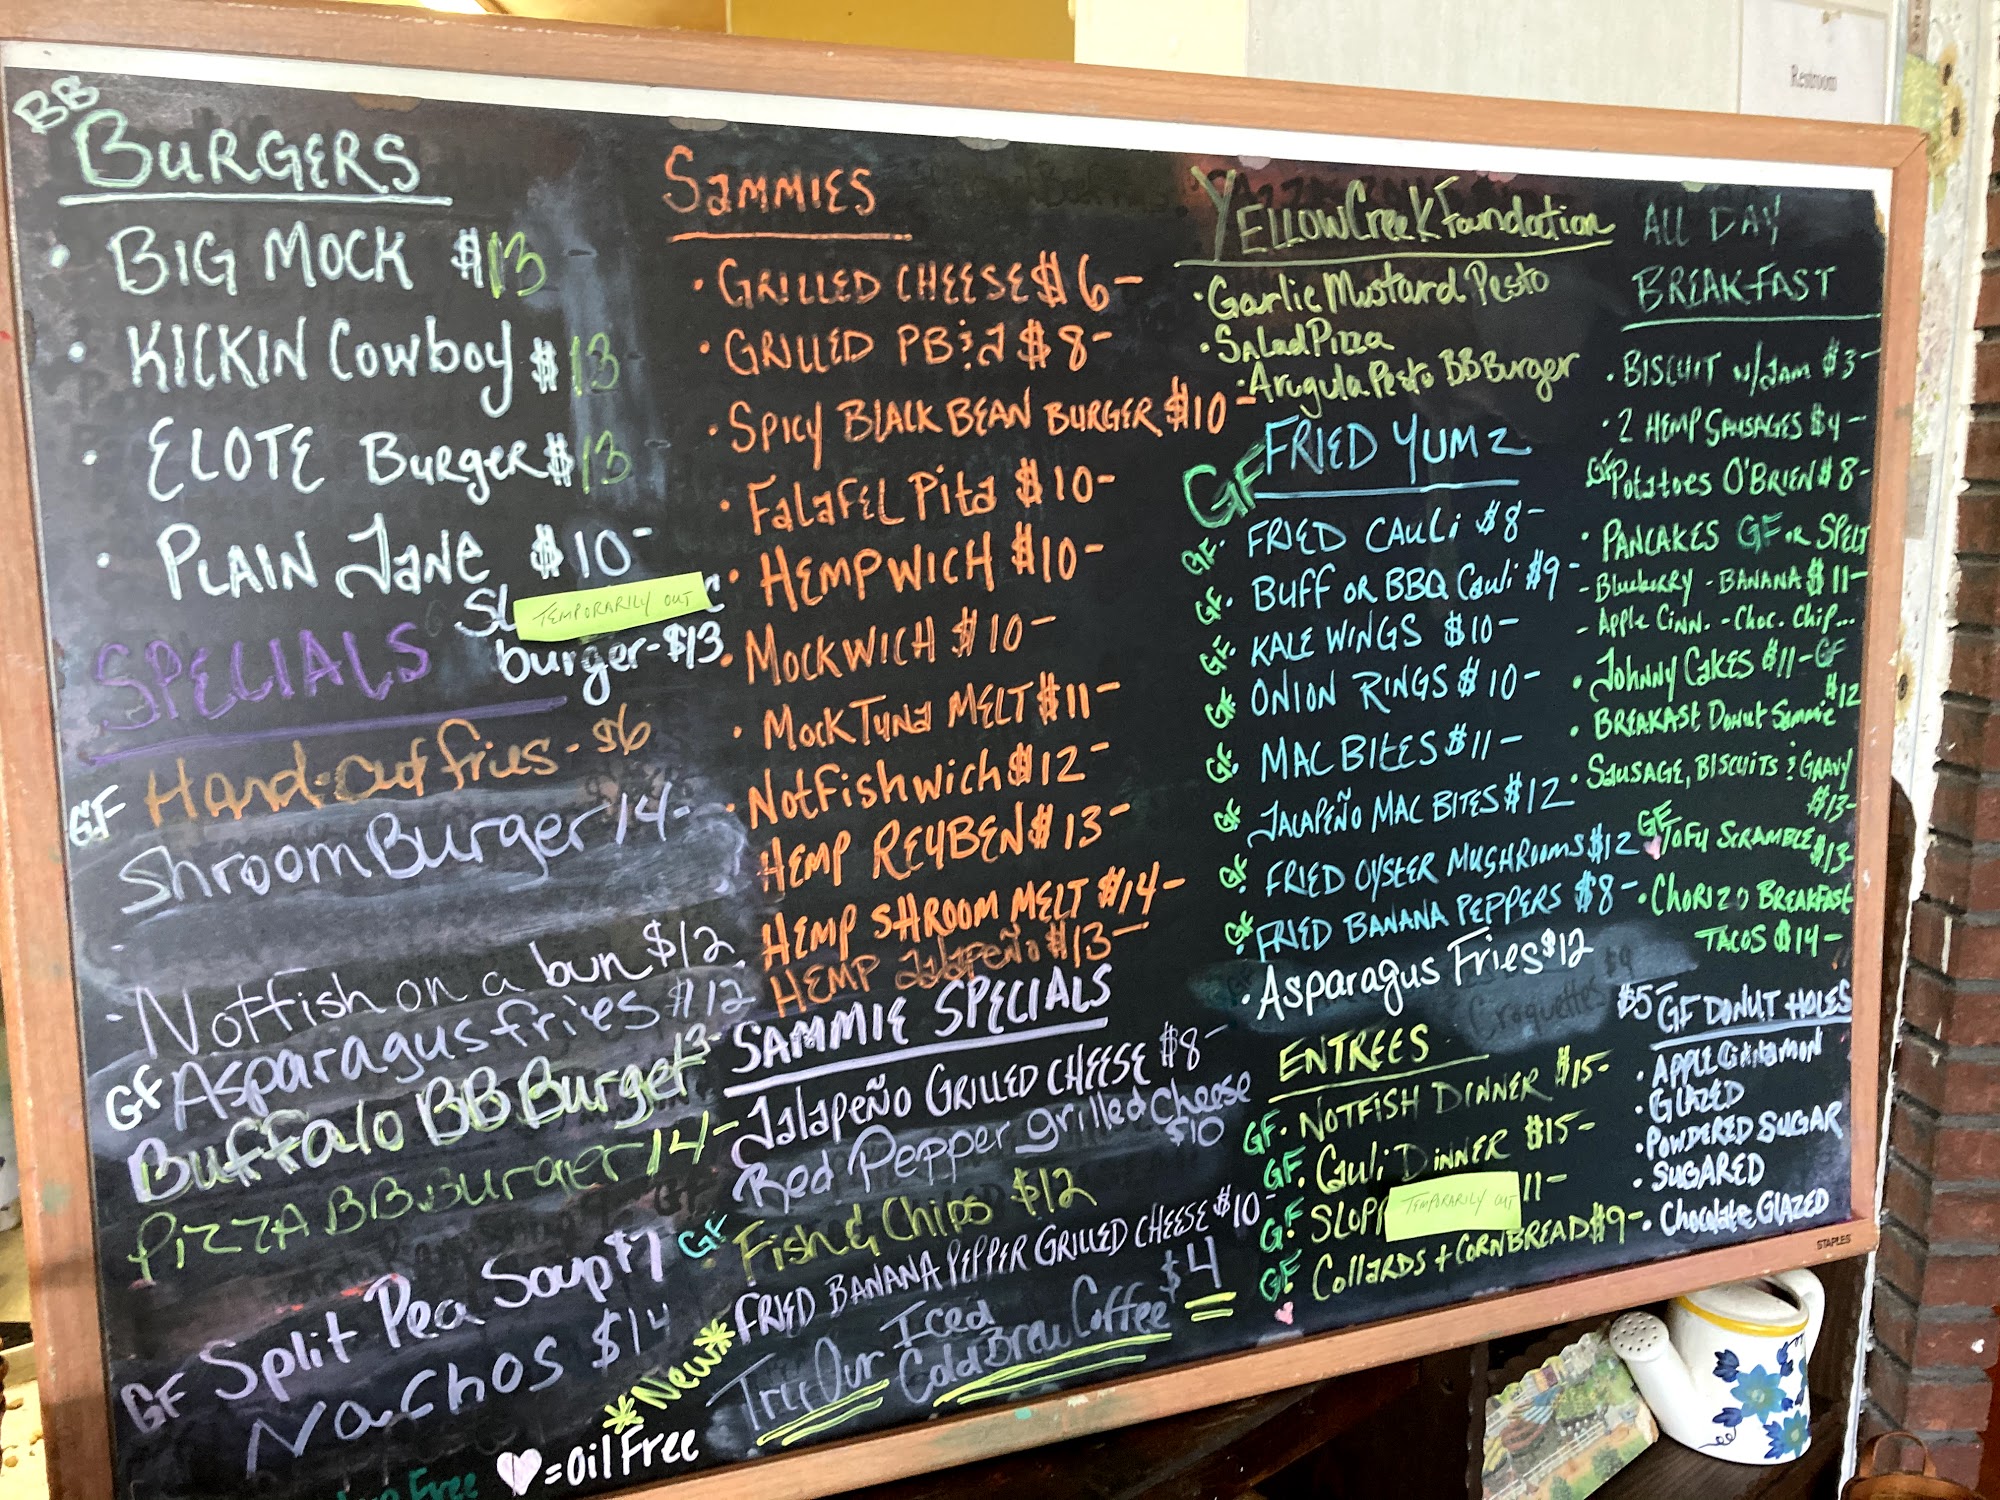 BB
BURGERS
• BIG MOCK $13
• KICKIN Cowboy $13
• ELOTE Burger $13
• PLAIN JANE $10-
TEMPORARILY OUT
burger-$13
SPECIALS
GF Hand-cut fries - $6
Shroom Burger 14-
- Notfish on a bun $12
GF Asparagus fries $12
Buffalo BB Burger 13-
PIZZA BB Burger 14-
GF Split Pea Soup $7
Nachos $14
Free
♥ = oil Free
SAMMIES
• GRILLED CHEESE $6-
• GRILLED PB & J $8-
• SPICY BLACK BEAN BURGER $10-
• FALAFEL PITA $10-
• HEMPWICH $10-
• MOCKWICH $10-
• MOCK TUNA MELT $11-
• NOTFISHWICH $12-
HEMP REUBEN $13-
HEMP SHROOM MELT $14-
HEMP JALAPEÑO $13-
SAMMIE SPECIALS
JALAPEÑO GRILLED CHEESE $8-
Red Pepper grilled cheese
$10
GF • Fish & Chips $12
FRIED BANANA PEPPER GRILLED CHEESE $10-
*New*
Try Our Iced
Cold Brew Coffee $4
YELLOW Creek Foundation
• Garlic Mustard Pesto
• Salad Pizza
• Arugula Pesto BB Burger
GF FRIED YUMZ
GF • FRIED CAULI $8-
GF • BUFF OR BBQ Cauli $9-
GF • KALE WINGS $10-
GF • ONION RINGS $10-
GF • MAC BITES $11-
GF • JALAPEÑO MAC BITES $12
GF • FRIED OYSTER MUSHROOMS $12
GF • FRIED BANANA PEPPERS $8-
• Asparagus Fries $12
Croquettes $9
ENTREES
GF • NOTFISH DINNER $15-
GF • Cauli DINNER $15-
GF • SLOPP TEMPORARILY OUT 11-
GF • Collards + CORNBREAD $9-
ALL DAY
BREAKFAST
• BISCUIT w/JAM $3-
• 2 HEMP SAUSAGES $4-
GF Potatoes O'BRIEN $8-
• PANCAKES GF or SPELT
- Blueberry - BANANA $11-
- Apple Cinn. - Choc. Chip...
• Johnny Cakes $11- GF
• BREAKAST Donut Sammie $12
• SAUSAGE, BISCUITS & GRAVY
$13-
GF TOFU SCRAMBLE $13-
• CHORIZO BREAKFAST
TACOS $14-
$5- GF DONUT HOLES
• APPLE CINNAMON
• GLAZED
• POWDERED SUGAR
• SUGARED
• Chocolate GLAZED
STAPLES
Restroom